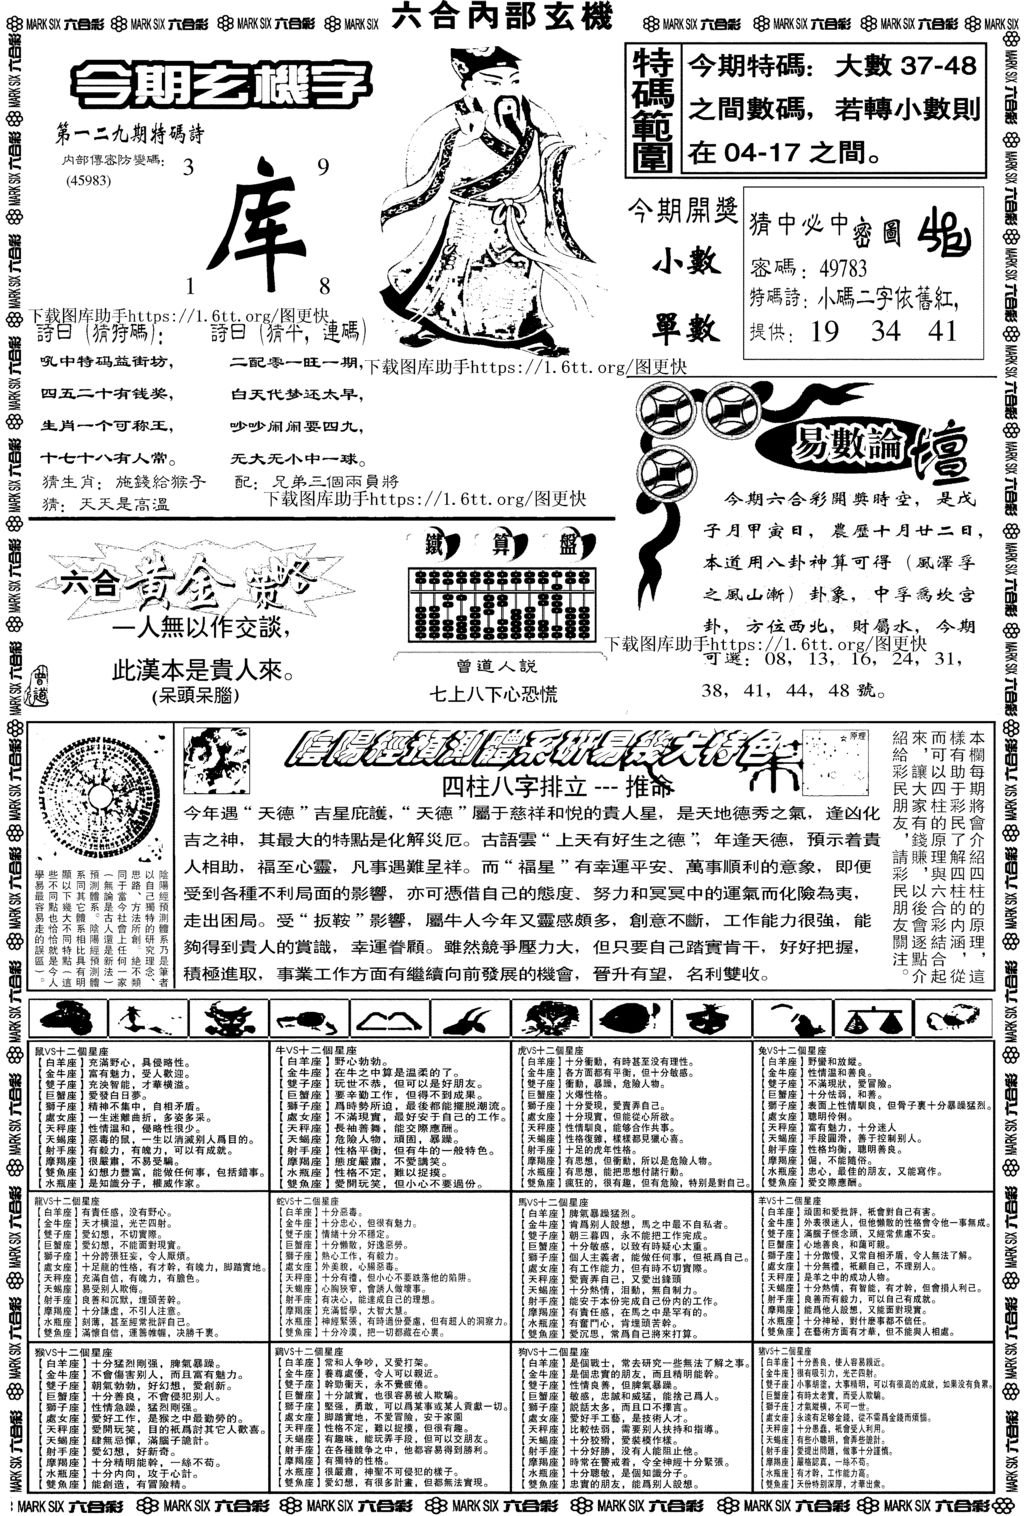 六合內部玄機
MARK SIX 六合彩
今期玄機字
第一二九期特碼詩
内部傳密防變碼:
(45983)
3 9
库
1 8
特碼範圍
今期特碼: 大數 37-48
之間數碼, 若轉小數則
在 04-17 之間。
今期開獎
小數
單數
猜中必中密圖
密碼: 49783
特碼詩: 小碼二字依舊紅,
提供: 19 34 41
下载图库助手https://1.6tt.org/图更快
詩曰 (猜特碼):
吼中特码益街坊,
四五二十有钱奖,
生肖一个可称王,
十七十八有人常。
猜生肖: 施錢給猴子
猜: 天天是高溫
詩曰 (猜半, 連碼)
二配零一旺一期,
白天代梦还太早,
吵吵闹闹要四九,
无大无小中一球。
配: 兄弟三個兩員將
下载图库助手https://1.6tt.org/图更快
下载图库助手https://1.6tt.org/图更快
易數論壇
今期六合彩開奬時空, 是戊
子月甲寅日, 農歷十月廿二日,
本道用八卦神算可得 (風澤孚
之風山漸) 卦象, 中孚爲坎宫
卦, 方位西北, 財屬水, 今期
可選: 08, 13, 16, 24, 31,
38, 41, 44, 48 號。
下载图库助手https://1.6tt.org/图更快
六合黃金策略
一人無以作交談,
此漢本是貴人來。
(呆頭呆腦)
曾道
鐵算盤
曾道人説
七上八下心恐慌
陰陽經預測體系乃是筆者
以自己獨特的研究理念、
思路、方法所創。絶不類
同于當今社會上任何一家
(無論是古人還是新法)
預測體系。陰陽經預測體
系同其它體系相比具有明
顯以下幾大不同特點(這
些不同點也恰恰就是今人
學易最容易走的誤區)。
陰陽經預測體系研易幾大特色
四柱八字排立 --- 推命
☆原理
今年遇“天德”吉星庇護,“天德”屬于慈祥和悅的貴人星, 是天地德秀之氣, 逢凶化
吉之神, 其最大的特點是化解災厄。古語雲“上天有好生之德”; 年逢天德, 預示着貴
人相助, 福至心靈, 凡事遇難呈祥。而“福星”有幸運平安、萬事順利的意象, 即便
受到各種不利局面的影響, 亦可憑借自己的態度、努力和冥冥中的運氣而化險為夷,
走出困局。受“扳鞍”影響, 屬牛人今年又靈感頗多, 創意不斷, 工作能力很強, 能
夠得到貴人的賞識, 幸運眷顧。雖然競爭壓力大, 但只要自己踏實肯干, 好好把握,
積極進取, 事業工作方面有繼續向前發展的機會, 晉升有望, 名利雙收。
本欄每期將會介紹四柱的原理,這
樣有助于彩民了解四柱的内涵,從
而可以四柱的原理與六合彩結合起
來,讓大家有錢賺,以後會逐點介
紹給彩民朋友,請彩民朋友關注。
鼠VS十二個星座
【白羊座】充滿野心, 具侵略性。
【金牛座】富有魅力, 受人歡迎。
【雙子座】充泱智能, 才華橫溢。
【巨蟹座】愛發白日夢。
【獅子座】精神不集中, 自相矛盾。
【處女座】一生迷離曲折, 多姿多采。
【天秤座】性情溫和, 侵略性很少。
【天蝎座】惡毒的鼠, 一生以消滅别人爲目的。
【射手座】有毅力, 有魄力, 可以有成就。
【摩羯座】很嚴肅, 不易受騙。
【雙魚座】幻想力豐富, 能做任何事, 包括錯事。
【水瓶座】是知識分子, 權威作家。
牛VS十二個星座
【白羊座】野心勃勃。
【金牛座】在牛之中算是溫柔的了。
【雙子座】玩世不恭, 但可以是好朋友。
【巨蟹座】要幸勤工作, 但得不到成果。
【獅子座】爲時勢所迫, 最後都能擺脱潮流。
【處女座】不滿現實, 最好安于自己的工作。
【天秤座】長袖善舞, 能交際應酬。
【天蝎座】危險人物, 頑固, 暴躁。
【射手座】性格平衡, 但有牛的一般特色。
【摩羯座】態度嚴肅, 不愛講笑。
【水瓶座】性格不定, 難以捉摸。
【雙魚座】愛開玩笑, 但小心不要過份。
虎VS十二個星座
【白羊座】十分衝動, 有時甚至没有理性。
【金牛座】各方面都有平衡, 但十分敏感。
【雙子座】衝動, 暴躁, 危險人物。
【巨蟹座】火爆性格。
【獅子座】十分愛現, 愛賣弄自己。
【處女座】十分現實, 但能從心所欲。
【天秤座】性情馴良, 能够合作共事。
【天蝎座】性格復雜, 樣樣都見獵心喜。
【射手座】十足的虎年性格。
【摩羯座】有思想, 但衝動, 所以是危險人物。
【水瓶座】有思想, 能把思想付諸行動。
【雙魚座】瘋狂的, 很有趣, 但有危險, 特别是對自己。
兔VS十二個星座
【白羊座】野蠻和放縱。
【金牛座】性情溫和善良。
【雙子座】不滿現狀, 愛冒險。
【巨蟹座】十分怯弱, 和善。
【獅子座】表面上性情馴良, 但骨子裏十分暴躁猛烈。
【處女座】聰明伶俐。
【天秤座】富有魅力, 十分迷人
【天蝎座】手段圓滑, 善于控制别人。
【射手座】性格均衡, 聰明善良。
【摩羯座】倔, 不能隨俗。
【水瓶座】忠心, 最佳的朋友, 又能寫作。
【雙魚座】愛交際應酬。
龍VS十二個星座
【白羊座】有責任感, 没有野心。
【金牛座】天才橫溢, 光芒四射。
【雙子座】愛幻想, 不切實際。
【巨蟹座】愛幻想, 不能面對現實。
【獅子座】十分誇張狂妄, 令人厭煩。
【處女座】十足龍的性格, 有才幹, 有魄力, 脚踏實地。
【天秤座】充滿自信, 有魄力, 有膽色。
【天蝎座】易受别人欺侮。
【射手座】良善和沉默, 埋頭苦幹。
【摩羯座】十分謙虚, 不引人注意。
【水瓶座】刻薄, 甚至經常批評自己。
【雙魚座】滿懷自信, 運籌帷幄, 决勝千裏。
蛇VS十二個星座
【白羊座】十分惡毒。
【金牛座】十分忠心, 但很有魅力。
【雙子座】情緒十分不穩定。
【巨蟹座】十分懶散, 好逸惡勞。
【獅子座】熱心工作, 有毅力。
【處女座】外美貌, 心腸惡毒。
【天秤座】十分有禮, 但小心不要跌落他的陷阱。
【天蝎座】心胸狹窄, 會誘人做壞事。
【射手座】有决心, 能達成自己的理想。
【摩羯座】充滿哲學, 大智大慧。
【水瓶座】神經緊張, 有時過份憂慮, 但有超人的洞察力。
【雙魚座】十分冷漠, 把一切都藏在心裏。
馬VS十二個星座
【白羊座】脾氣暴躁猛烈。
【金牛座】肯爲别人設想, 馬之中最不自私者。
【雙子座】朝三暮四, 永不能把工作完成。
【巨蟹座】十分敏感, 以致有時疑心太重。
【獅子座】個人主義者, 能做任何事, 但祇爲自己。
【處女座】有工作能力, 但有時不切實際。
【天秤座】愛賣弄自己, 又愛出鋒頭
【天蝎座】十分熱情, 沮動, 無自制力。
【射手座】能安于本份完成自己份内的工作。
【摩羯座】有責任感, 在馬之中是罕有的。
【水瓶座】有奮鬥心, 肯埋頭苦幹。
【雙魚座】愛沉思, 常爲自己將來打算。
羊VS十二個星座
【白羊座】頑固和愛批評, 祇會對自己有害。
【金牛座】外表很迷人, 但他懶散的性格會令他一事無成。
【雙子座】滿腦子怪念頭, 又經常焦慮不安。
【巨蟹座】心地善良, 和藹可親。
【獅子座】十分傲慢, 又常自相矛盾, 令人無法了解。
【處女座】十分無禮, 祇顧自己, 不理别人。
【天秤座】是羊之中的成功人物。
【天蝎座】十分熱情, 有智能, 有才幹, 但會損人利己。
【射手座】良善而有毅力, 可以自己有成就。
【摩羯座】能爲他人設想, 又能面對現實。
【水瓶座】十分神秘, 對什麽事都不信任。
【雙魚座】在藝術方面有才華, 但不能與人相處。
猴VS十二個星座
【白羊座】十分猛烈剛强, 脾氣暴躁。
【金牛座】不會傷害别人, 而且富有魅力。
【雙子座】朝氣勃勃, 好幻想, 愛創新。
【巨蟹座】十分善良, 不會侵犯别人。
【獅子座】性情急躁, 猛烈剛强。
【處女座】愛好工作, 是猴之中最勤勞的。
【天秤座】愛開玩笑, 目的祇爲討其它人歡喜。
【天蝎座】肆無忌憚, 滿腦子詭計。
【射手座】愛幻想, 好新奇。
【摩羯座】十分精明能幹, 一絲不苟。
【水瓶座】十分内向, 攻于心計。
【雙魚座】能創造, 有冒險精。
鷄VS十二個星座
【白羊座】常和人争吵, 又愛打架。
【金牛座】養尊處優, 令人可以親近。
【雙子座】幹勁衝天, 永不覺疲倦。
【巨蟹座】十分誠實, 也很容易被人欺騙。
【獅子座】堅强, 勇敢, 可以爲某事或某人貢獻一切。
【處女座】脚踏實地, 不愛冒險, 安于家園
【天秤座】性格不定, 難以捉摸, 但很有趣。
【天蝎座】有趣味, 能玩弄手段, 但可以交朋友。
【射手座】在各種競争之中, 他都容易得到勝利。
【摩羯座】有獨特的性格。
【水瓶座】很嚴肅, 神聖不可侵犯的樣子。
【雙魚座】愛幻想, 有很多計畫, 但都無法實現。
狗VS十二個星座
【白羊座】是個戰士, 常去研究一些無法了解之事。
【金牛座】是個忠實的朋友, 而且精明能幹。
【雙子座】性情良善, 但脾氣暴躁。
【巨蟹座】敏感, 忠誠和威猛, 能捨己爲人。
【獅子座】説話太多, 而且口不擇言。
【處女座】愛好手工藝, 是技術人才。
【天秤座】比較怯弱, 需要别人扶持和指導。
【天蝎座】十分狡猾, 愛裝模作樣。
【射手座】十分好勝, 没有人能阻止他。
【摩羯座】時常在警戒着, 令全神經十分緊張。
【水瓶座】十分聰敏, 是個知識分子。
【雙魚座】忠實的朋友, 能爲别人設想。
猪VS十二個星座
【白羊座】十分善良, 使人容易親近。
【金牛座】很有吸引力, 光芒四射。
【雙子座】小事胡塗, 大事精明, 可以有很高的成就, 如果没有負累。
【巨蟹座】有時太老實, 而受人欺騙。
【獅子座】才氣縱横, 不可一世。
【處女座】永遠有足够金錢, 從不需爲金錢而煩惱。
【天秤座】十分愚蠢, 祇會受人利用。
【天蝎座】有些小聰明, 會弄些詭計。
【射手座】愛提出問題, 做事十分謹慎。
【摩羯座】嚴格認真, 一絲不苟。
【水瓶座】有才幹, 工作能力高。
【雙魚座】天份特别深厚, 才華出衆。
MARK SIX 六合彩